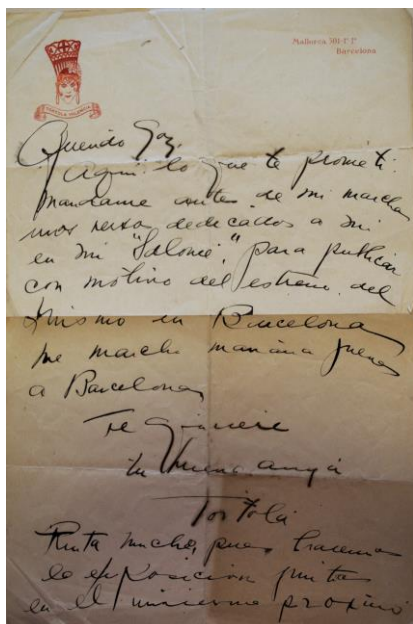 Mallorca 301-1º 1ª
Barcelona
TORTOLA VALENCIA
Querido Goy.
Aquí lo que te prometí.
Mandame antes de mi marcha
unos versos dedicados a mi
en mi "Salomé", para publicar
con motivo del estreno del
mismo en Barcelona
me marcho mañana jueves
a Barcelona
Te quiere
tu buena amiga
Tortola
Pinta mucho, pues haremos
la exposición juntos
en el invierno proximo